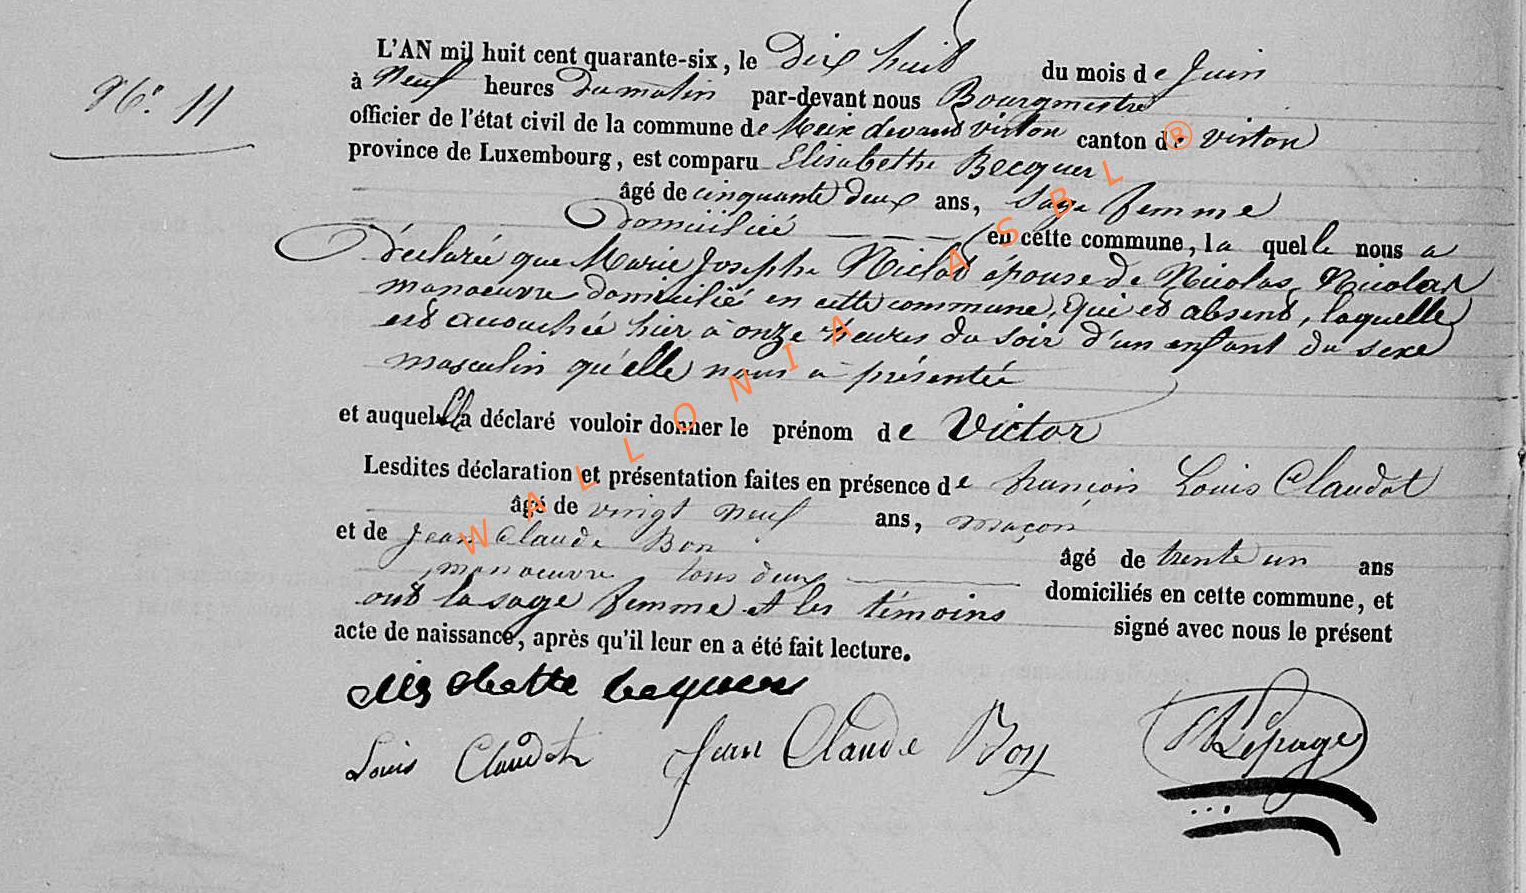 L'AN mil huit cent quarante-six, le Dix huit du mois de Juin
N.° 11
à Neuf heures Du matin par-devant nous Bourgmestre
officier de l'état civil de la commune de Meix devant virton canton de virton
province de Luxembourg, est comparu Elisabethe Becquer
âgé de cinquante deux ans, sage femme
Domiciliée en cette commune, la quelle nous a
Déclarée que Marie Josephe Niclot épouse de Nicolas Nicolas
manoeuvre domicilié en cette commune, qui est absent, laquelle
est accouchée hier à onze heures du soir d'un enfant du sexe
masculin qu'elle nous a présentée
et auquel elle a déclaré vouloir donner le prénom de Victor
Lesdites déclaration et présentation faites en présence de françois Louis Claudot
âgé de vingt neuf ans, maçon
et de Jean Claude Bon âgé de trente un ans
manoeuvre tous deux domiciliés en cette commune, et
ont la sage femme et les témoins signé avec nous le présent
acte de naissance, après qu'il leur en a été fait lecture.
elis abette becquer
Louis Claudot Jean Claude Bon Lepage
WALLONIA ASBL ®